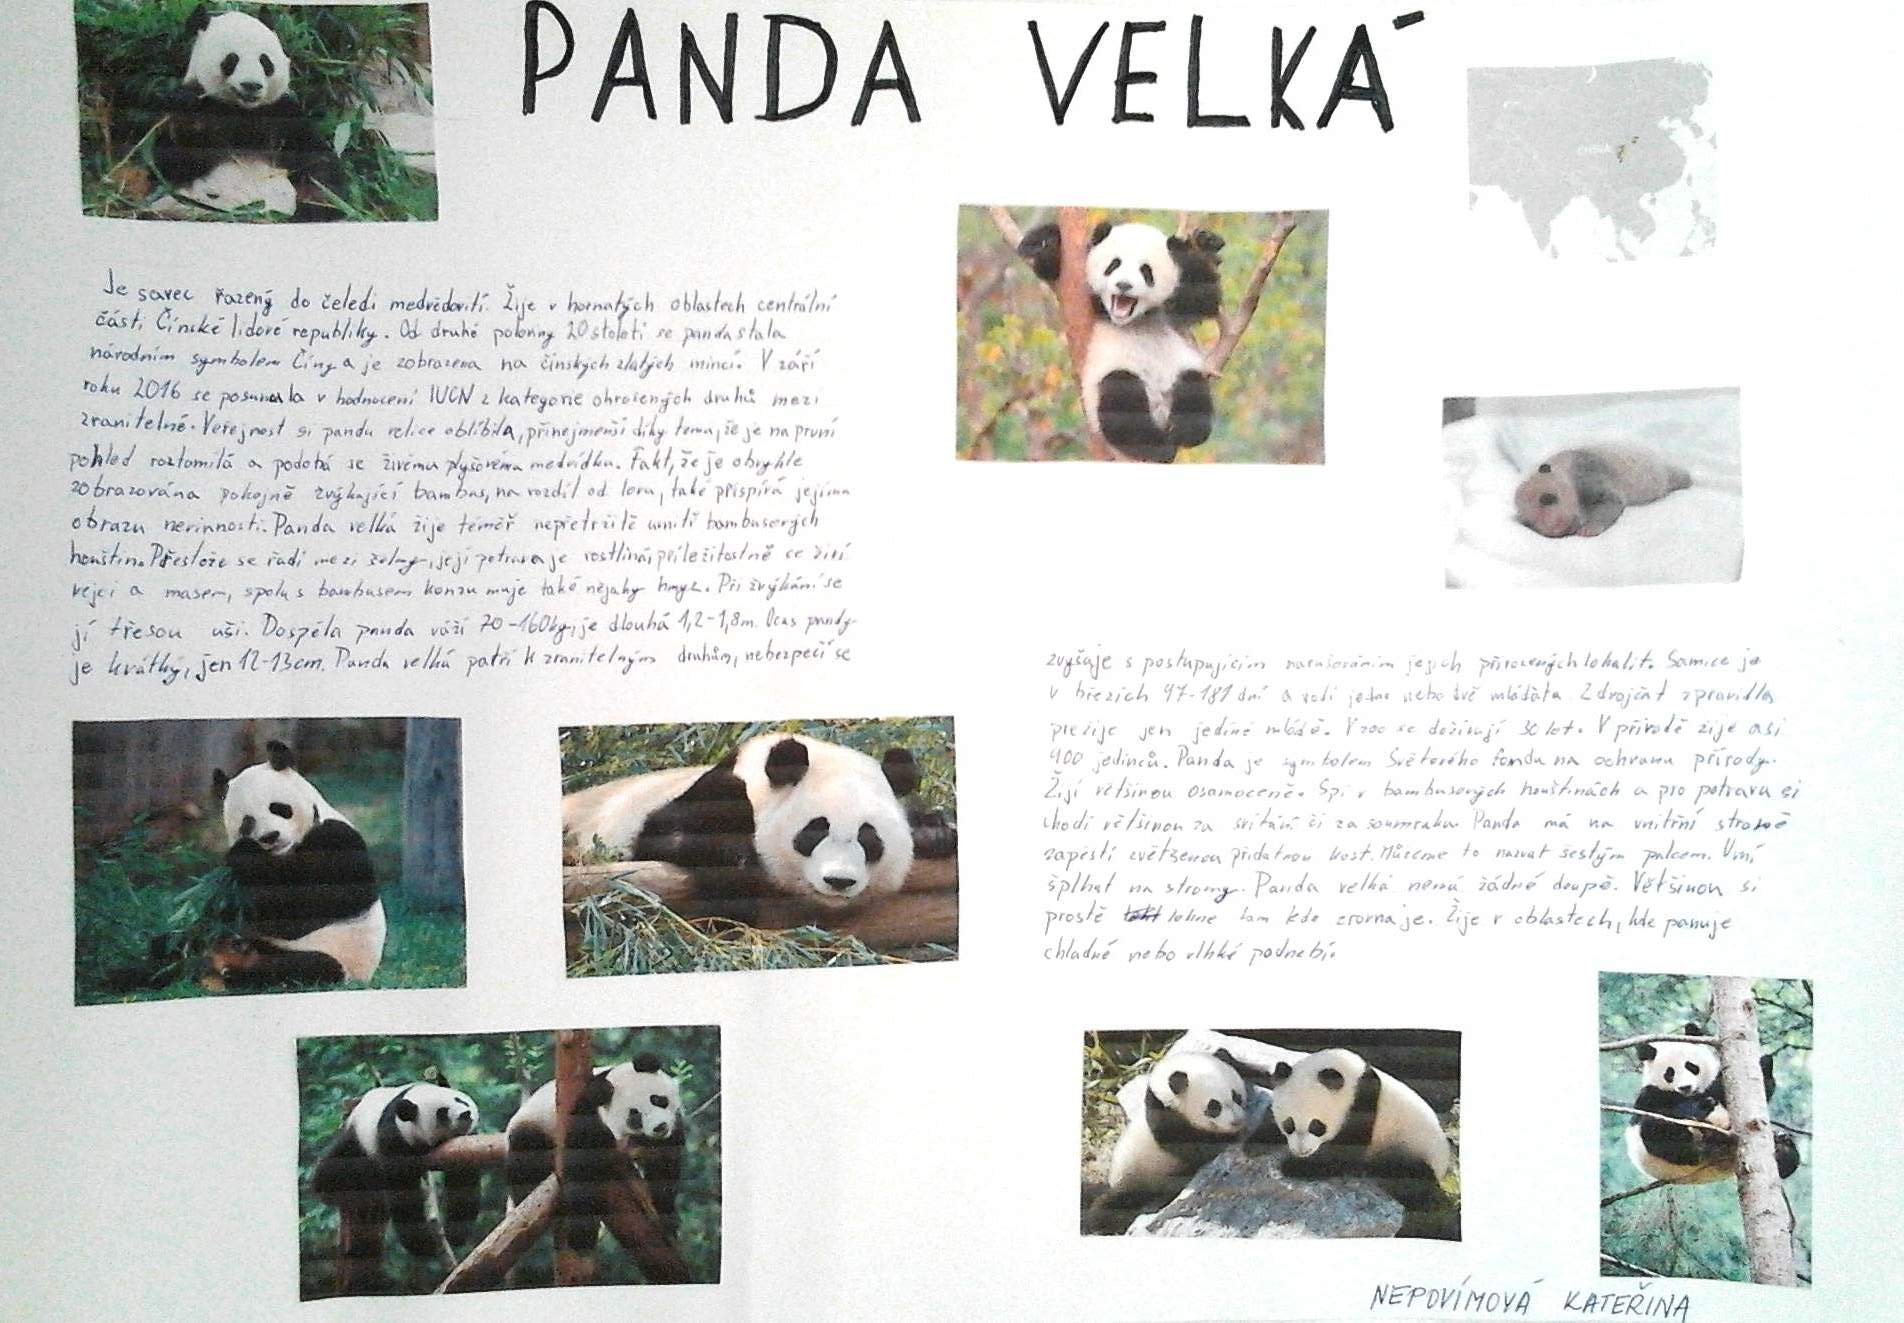 PANDA VELKÁ
Je savec řazený do čeledi medvědovití. Žije v hornatých oblastech centrální
části Čínské lidové republiky. Od druhé poloviny 20 století se panda stala
národním symbolem Číny a je zobrazena na čínských zlatých mincí. V září
roku 2016 se posunula v hodnocení IUCN z kategorie ohrožených druhů mezi
zranitelné. Veřejnost si pandu velice oblíbila, přinejmenší díky tomu, že je na první
pohled roztomilá a podobá se živému plyšovému medvídku. Fakt, že je obvykle
zobrazována pokojně žvýkající bambus, na rozdíl od lovu, také přispívá jejímu
obrazu nevinnosti. Panda velká žije téměř nepřetržitě uvnitř bambusových
houštin. Přestože se řadí mezi šelmy, její potrava je rostliná, příležitostně se živí
vejci a masem, spolu s bambusem konzumuje také nějaký hmyz. Při žvýkání se
jí třesou uši. Dospělá panda váží 70-160kg, je dlouhá 1,2-1,8m. Ocas pandy
je kvátký, jen 12-13cm. Panda velká patří k zranitelným druhům, nebezpečí se
zvyšuje s postupujícím narušováním jejich přirozených lokalit. Samice je
v březích 97-181 dní a rodí jedno nebo dvě mláďata. Z dvojčat zpravidla
přežije jen jediné mládě. V zoo se dožívají 30 let. V přírodě žije asi
900 jedinců. Panda je symbolem Světového fondu na ochranu přírody.
Žijí většinou osamoceně. Spí v bambusových houštinách a pro potravu si
chodí většinou za svítání či za soumraku. Panda má na vnitřní straně
zápěstí zvětšenou přídatnou kost. Můžeme to nazvat šestým palcem. Umí
šplhat na stromy. Panda velká nemá žádné doupě. Většinou si
prostě lehne tam kde zrovna je. Žije v oblastech, kde panuje
chladné nebo vlhké podnebí.
NEPOVÍMOVÁ KATEŘINA